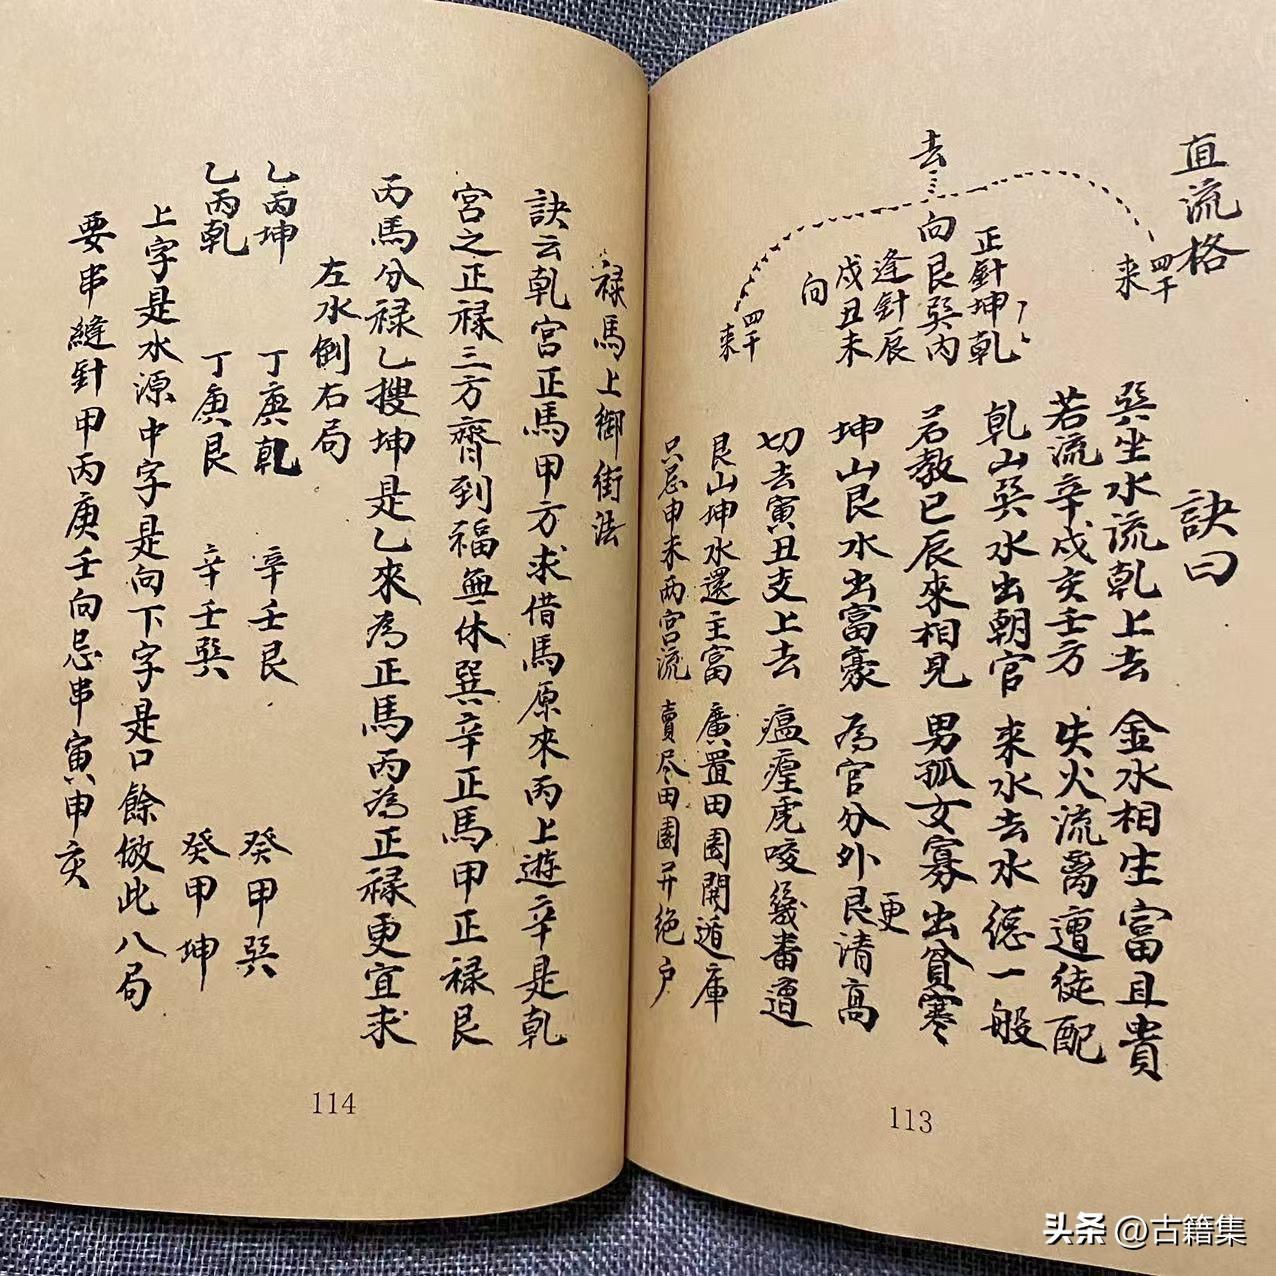 直流格
四干
来
去
正針坤乾
向艮巽丙
逢針辰
戍丑未
向
四干
来
訣曰
巽坐水流乾上去 金水相生富且貴
若流辛戍亥壬方 失火流离遭徒配
乾山巽水出朝官 来水去水總一般
若教巳辰來相見 男孤女寡出貧寒
坤山艮水出富豪 為官分外艮清高
更
切去寅丑支上去 瘟瘽虎咬幾番遭
艮山坤水還主富 廣置田园開遁庫
只忌申未两宫流 賣尽田園并绝户
113
禄馬上御街法
訣云乾宫正馬甲方求借馬原來丙上遊辛是乾
宫之正禄三方齊到福無休巽辛正馬甲正禄艮
丙馬分禄乙搜坤是乙來為正馬丙為正禄更宜求
左水倒右局
乙丙坤 丁庚乾 辛壬艮 癸甲巽
乙丙乾 丁庚艮 辛壬巽 癸甲坤
上字是水源中字是向下字是口餘倣此八局
要串縫針甲丙庚壬向忌串寅申亥
114
头条 @古籍集